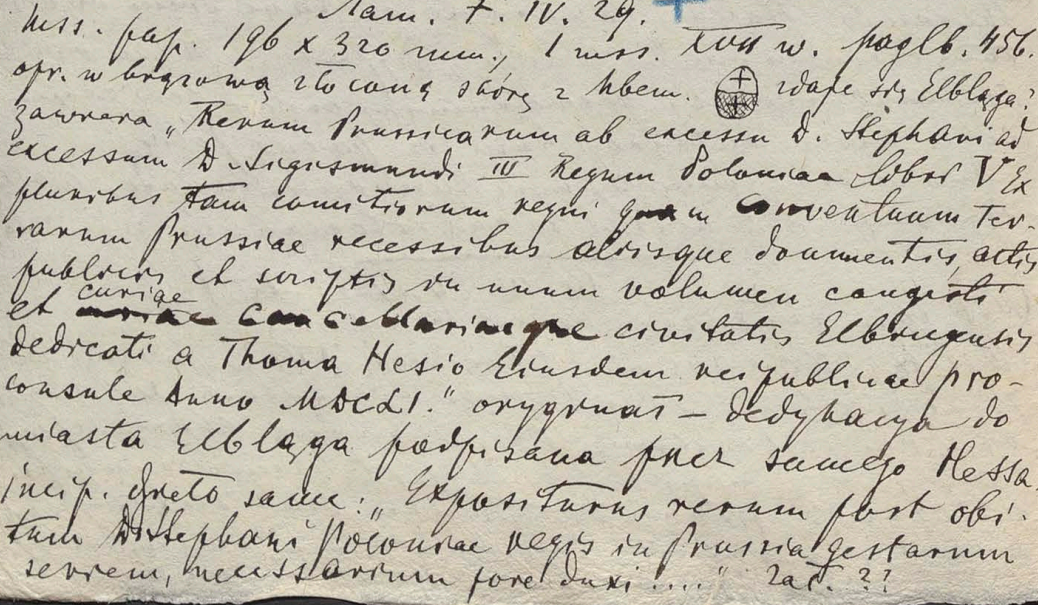 Nam. 7. IV. 29.
Mss. pap. 196 x 320 mm., 1 mss. XVII w. pag lb. 456.
opr. w brązową złoconą skórę z hbem. zdaje się Elbląga?
zawiera „Rerum Prussicarum ab excessu D. Stephani ad
excessum D. Sigismundi III Regum Poloniae libri V Ex
pluribus tam comitiorum regni quam Conventuum Ter-
rarum Prussiae recessibus aliisque documentis, actis
publicis et scriptis in unum volumen congesti
et curiae Cancellariaeque civitatis Elbingensis
dedicati a Thoma Hesio Eiusdem reipublicae pro-
consule Anno MDCLI." oryginał – dedykacya do
miasta Elbląga podpisana przez samego Hessa.
incip. : „Expositurus rerum post obi-
tum D. Stephani Poloniae regis in Prussia gestarum
seriem, necessarium fore duxi ....." ??